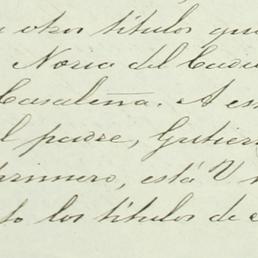 otros títulos que
Noria del
Casaleña. A es
l padre, Gutier
primero, está V
to los títulos de